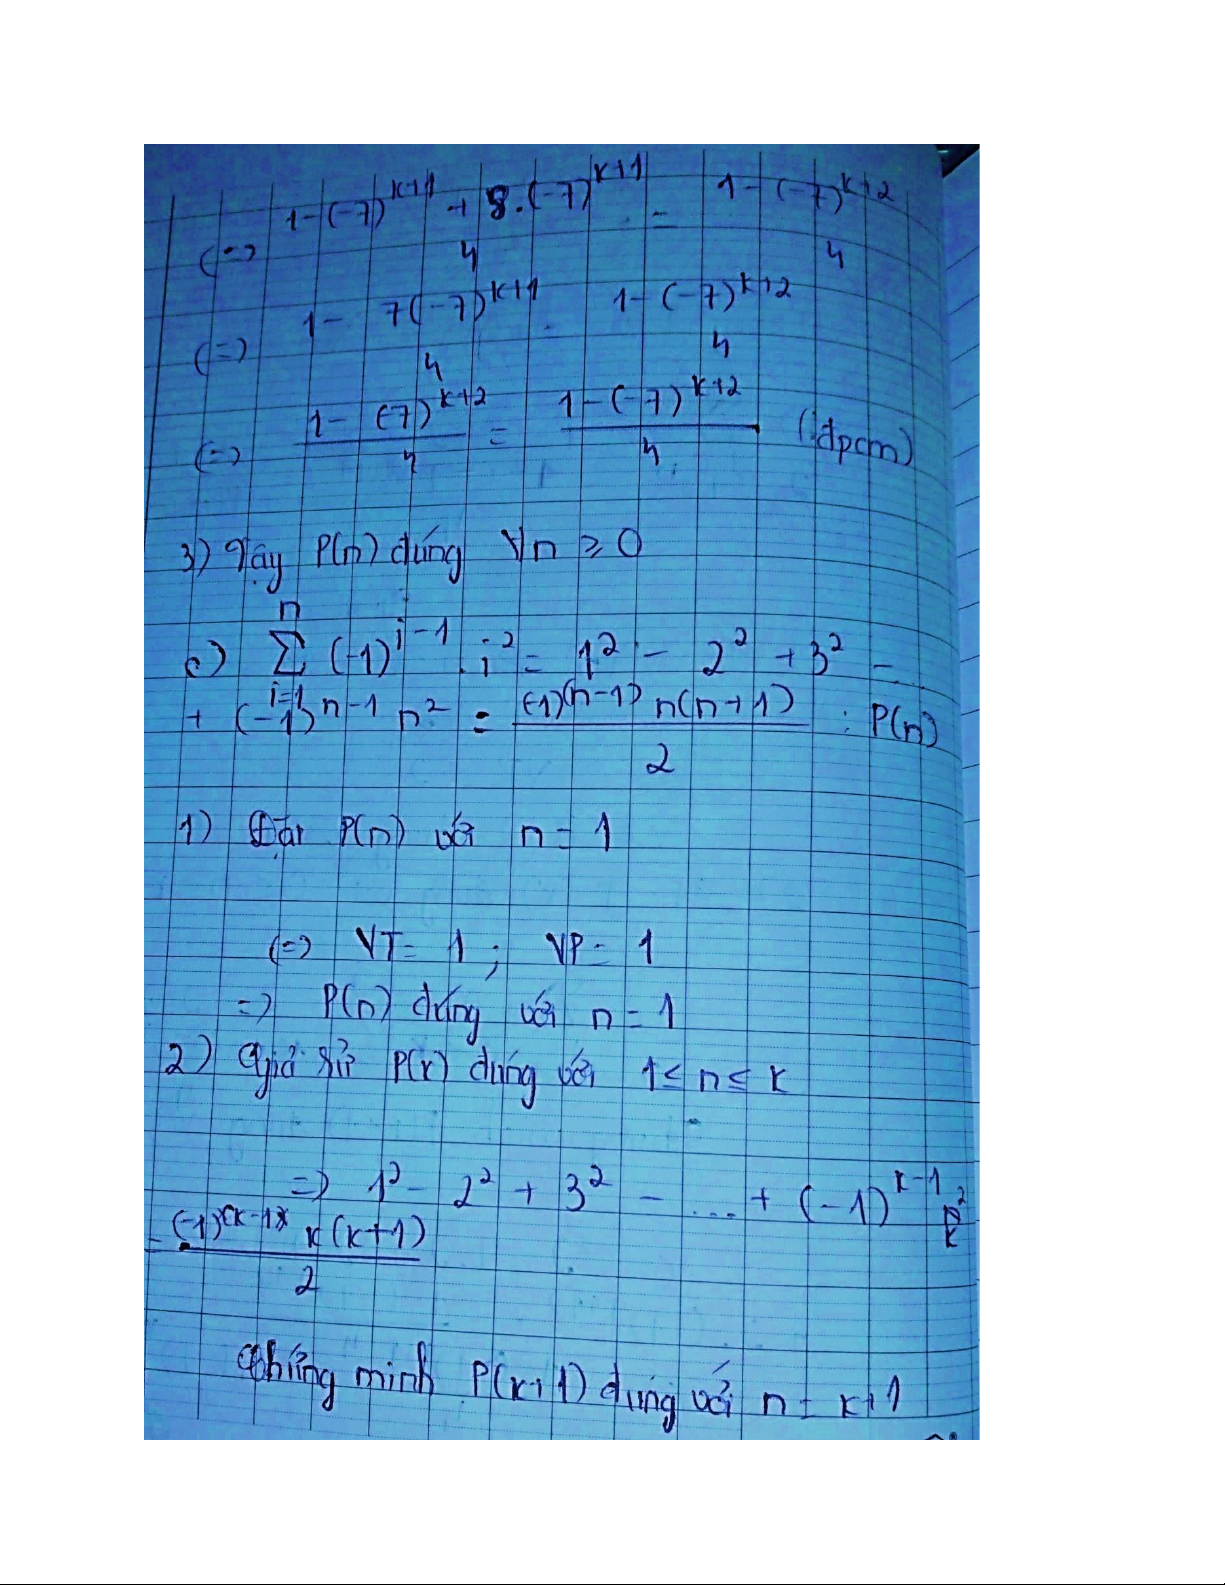 (=) 1-(-7)^{k+1} + 8.(-7)^{k+1} / 4 = 1-(-7)^{k+2} / 4
(=) 1- 7(-7)^{k+1} / 4 = 1-(-7)^{k+2} / 4
(=) 1- (-7)^{k+2} / 4 = 1-(-7)^{k+2} / 4 (đpcm)
3) Vậy P(n) đúng ∀n ≥ 0
c) ∑_{i=1}^{n} (-1)^{i-1} . i² = 1² - 2² + 3² - ...
+ (-1)^{n-1} n² = (-1)^{(n-1)} n(n+1) / 2 : P(n)
1) Đặt P(n) với n = 1
(=) VT = 1 ; VP = 1
=) P(n) đúng với n = 1
2) Giả sử P(k) đúng với 1 ≤ n ≤ k
=) 1² - 2² + 3² - .... + (-1)^{k-1} k²
= (-1)^{(k-1)} k(k+1) / 2
Chứng minh P(k+1) đúng với n = k+1